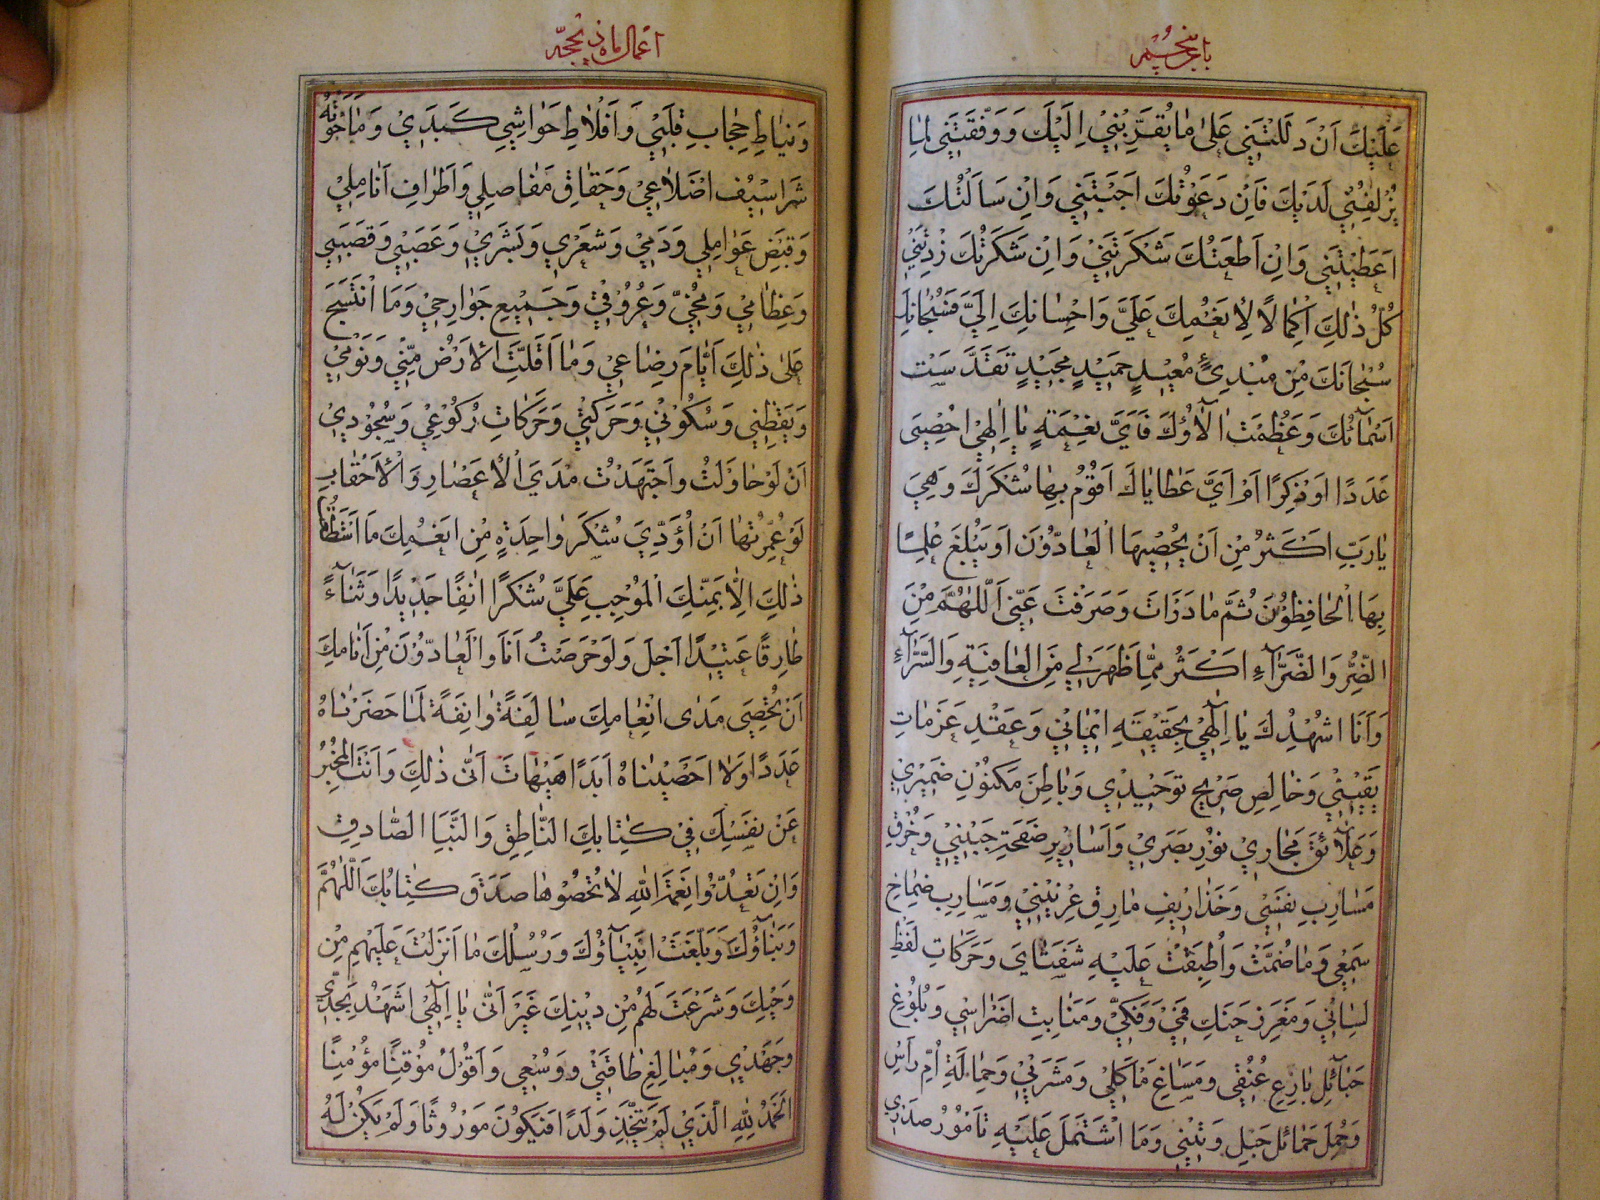 باب پنجم
عَلَيْكَ اَنْ دَلَلْتَنِي عَلىٰ مٰا يُقَرِّبُنِي اِلَيْكَ وَوَفَّقْتَنِي لِمٰا
يُزْلِفُنِي لَدَيْكَ فَاِنْ دَعَوْتُكَ اَجَبْتَنِي وَاِنْ سَاَلْتُكَ
اَعْطَيْتَنِي وَاِنْ اَطَعْتُكَ شَكَرْتَنِي وَاِنْ شَكَرْتُكَ زِدْتَنِي
كُلُّ ذٰلِكَ اِكْمٰالًا لِاَنْعُمِكَ عَلَيَّ وَاِحْسٰانِكَ اِلَيَّ فَسُبْحٰانَكَ
سُبْحٰانَكَ مِنْ مُبْدِئٍ مُعِيْدٍ حَمِيْدٍ مَجِيْدٍ تَقَدَّسَتْ
اَسْمٰآئُكَ وَعَظُمَتْ اٰلٰآؤُكَ فَاَيَّ نِعَمِهِ يٰا اِلٰهِي اُحْصِي
عَدَدًا اَوْ ذِكْرًا اَمْ اَيَّ عَطٰايٰاكَ اَقُوْمُ بِهٰا شُكْرَكَ وَهِيَ
يٰا رَبِّ اَكْثَرُ مِنْ اَنْ يُحْصِيَهَا الْعٰادُّوْنَ اَوْ يَبْلُغَ عِلْمًا
بِهَا الْحٰافِظُوْنَ ثُمَّ مٰا دَرَاْتَ وَصَرَفْتَ عَنِّي اَللّٰهُمَّ مِنَ
الضُّرِّ وَالضَّرّٰآءِ اَكْثَرُ مِمّٰا ظَهَرَ لِي مِنَ الْعٰافِيَةِ وَالسَّرّٰآءِ
وَاَنَا اُشْهِدُكَ يٰا اِلٰهِي بِحَقِيْقَةِ اِيْمٰانِي وَعَقْدِ عَزَمٰاتِ
يَقِيْنِي وَخٰالِصِ صَرِيْحِ تَوْحِيْدِي وَبٰاطِنِ مَكْنُوْنِ ضَمِيْرِي
وَعَلٰآئِقِ مَجٰارِي نُوْرِ بَصَرِي وَاَسٰارِيْرِ صَفْحَةِ جَبِيْنِي وَخُرْقِ
مَسٰارِبِ نَفْسِي وَخَذٰارِيْفِ مٰارِنِ عِرْنِيْنِي وَمَسٰارِبِ صِمٰاخِ
سَمْعِي وَمٰا ضُمَّتْ وَاُطْبِقَتْ عَلَيْهِ شَفَتٰايَ وَحَرَكٰاتِ لَفْظِ
لِسٰانِي وَمَغْرَزِ حَنَكِ فَمِي وَفَكِّي وَمَنٰابِتِ اَضْرٰاسِي وَبُلُوْغِ
حَبٰآئِلِ بٰارِعِ عُنُقِي وَمَسٰاغِ مَاْكَلِي وَمَشْرَبِي وَحِمٰالَةِ اُمِّ رَاْسِي
وَجُمَلِ حَمٰائِلِ حَبْلِ وَتِيْنِي وَمَا اشْتَمَلَ عَلَيْهِ تٰامُوْرُ صَدْرِي
اعمال ماه ذیحجه
وَنِيٰاطِ حِجٰابِ قَلْبِي وَاَفْلٰاطِ حَوٰاشِي كَبِدِي وَمٰا حَوَتْهُ
شَرٰاسِيْفُ اَضْلٰاعِي وَحِقٰاقِ مَفٰاصِلِي وَاَطْرٰافِ اَنٰامِلِي
وَقَبْضِ عَوٰامِلِي وَدَمِي وَشَعْرِي وَبَشَرِي وَعَصَبِي وَقَصَبِي
وَعِظٰامِي وَمُخِّي وَعُرُوْقِي وَجَمِيْعِ جَوٰارِحِي وَمَا انْتَسَجَ
عَلىٰ ذٰلِكَ اَيّٰامَ رِضٰاعِي وَمٰا اَقَلَّتِ الْاَرْضُ مِنِّي وَنَوْمِي
وَيَقْظَتِي وَسُكُوْنِي وَحَرَكَتِي وَحَرَكٰاتِ رُكُوْعِي وَسُجُوْدِي
اَنْ لَوْ حٰاوَلْتُ وَاجْتَهَدْتُ مَدَى الْاَعْصٰارِ وَالْاَحْقٰابِ
لَوْ عُمِّرْتُهٰا اَنْ اُؤَدِّيَ شُكْرَ وٰاحِدَةٍ مِنْ اَنْعُمِكَ مَا اسْتَطَعْتُ
ذٰلِكَ اِلّٰا بِمَنِّكَ الْمُوْجَبِ عَلَيَّ شُكْرًا اٰنِفًا جَدِيْدًا وَثَنٰآءً
طٰارِقًا عَتِيْدًا اَجَلْ وَلَوْ حَرَصْتُ اَنَا وَالْعٰادُّوْنَ مِنْ اَنٰامِكَ
اَنْ نُحْصِيَ مَدىٰ اِنْعٰامِكَ سٰالِفَةً وَاٰنِفَةً لَمٰا حَصَرْنٰاهُ
عَدَدًا وَلٰا اَحْصَيْنٰاهُ اَبَدًا هَيْهٰاتَ اَنّىٰ ذٰلِكَ وَاَنْتَ الْمُخْبِرُ
عَنْ نَفْسِكَ فِي كِتٰابِكَ النّٰاطِقِ وَالنَّبَاِ الصّٰادِقِ
وَاِنْ تَعُدُّوْا نِعْمَةَ اللهِ لٰا تُحْصُوْهٰا صَدَقَ كِتٰابُكَ اَللّٰهُمَّ
وَنَبٰآؤُكَ وَبَلَّغَتْ اَنْبِيٰآؤُكَ وَرُسُلُكَ مٰا اَنْزَلْتَ عَلَيْهِمْ مِنْ
وَحْيِكَ وَشَرَعْتَ لَهُمْ مِنْ دِيْنِكَ غَيْرَ اَنِّي يٰا اِلٰهِي اَشْهَدُ بِجِدِّي
وَجَهْدِي وَمُبٰالِغِ طٰاقَتِي وَوُسْعِي وَاَقُوْلُ مُوْقِنًا مُؤْمِنًا
اَلْحَمْدُ لِلهِ الَّذِي لَمْ يَتَّخِذْ وَلَدًا فَيَكُوْنَ مَوْرُوْثًا وَلَمْ يَكُنْ لَهُ